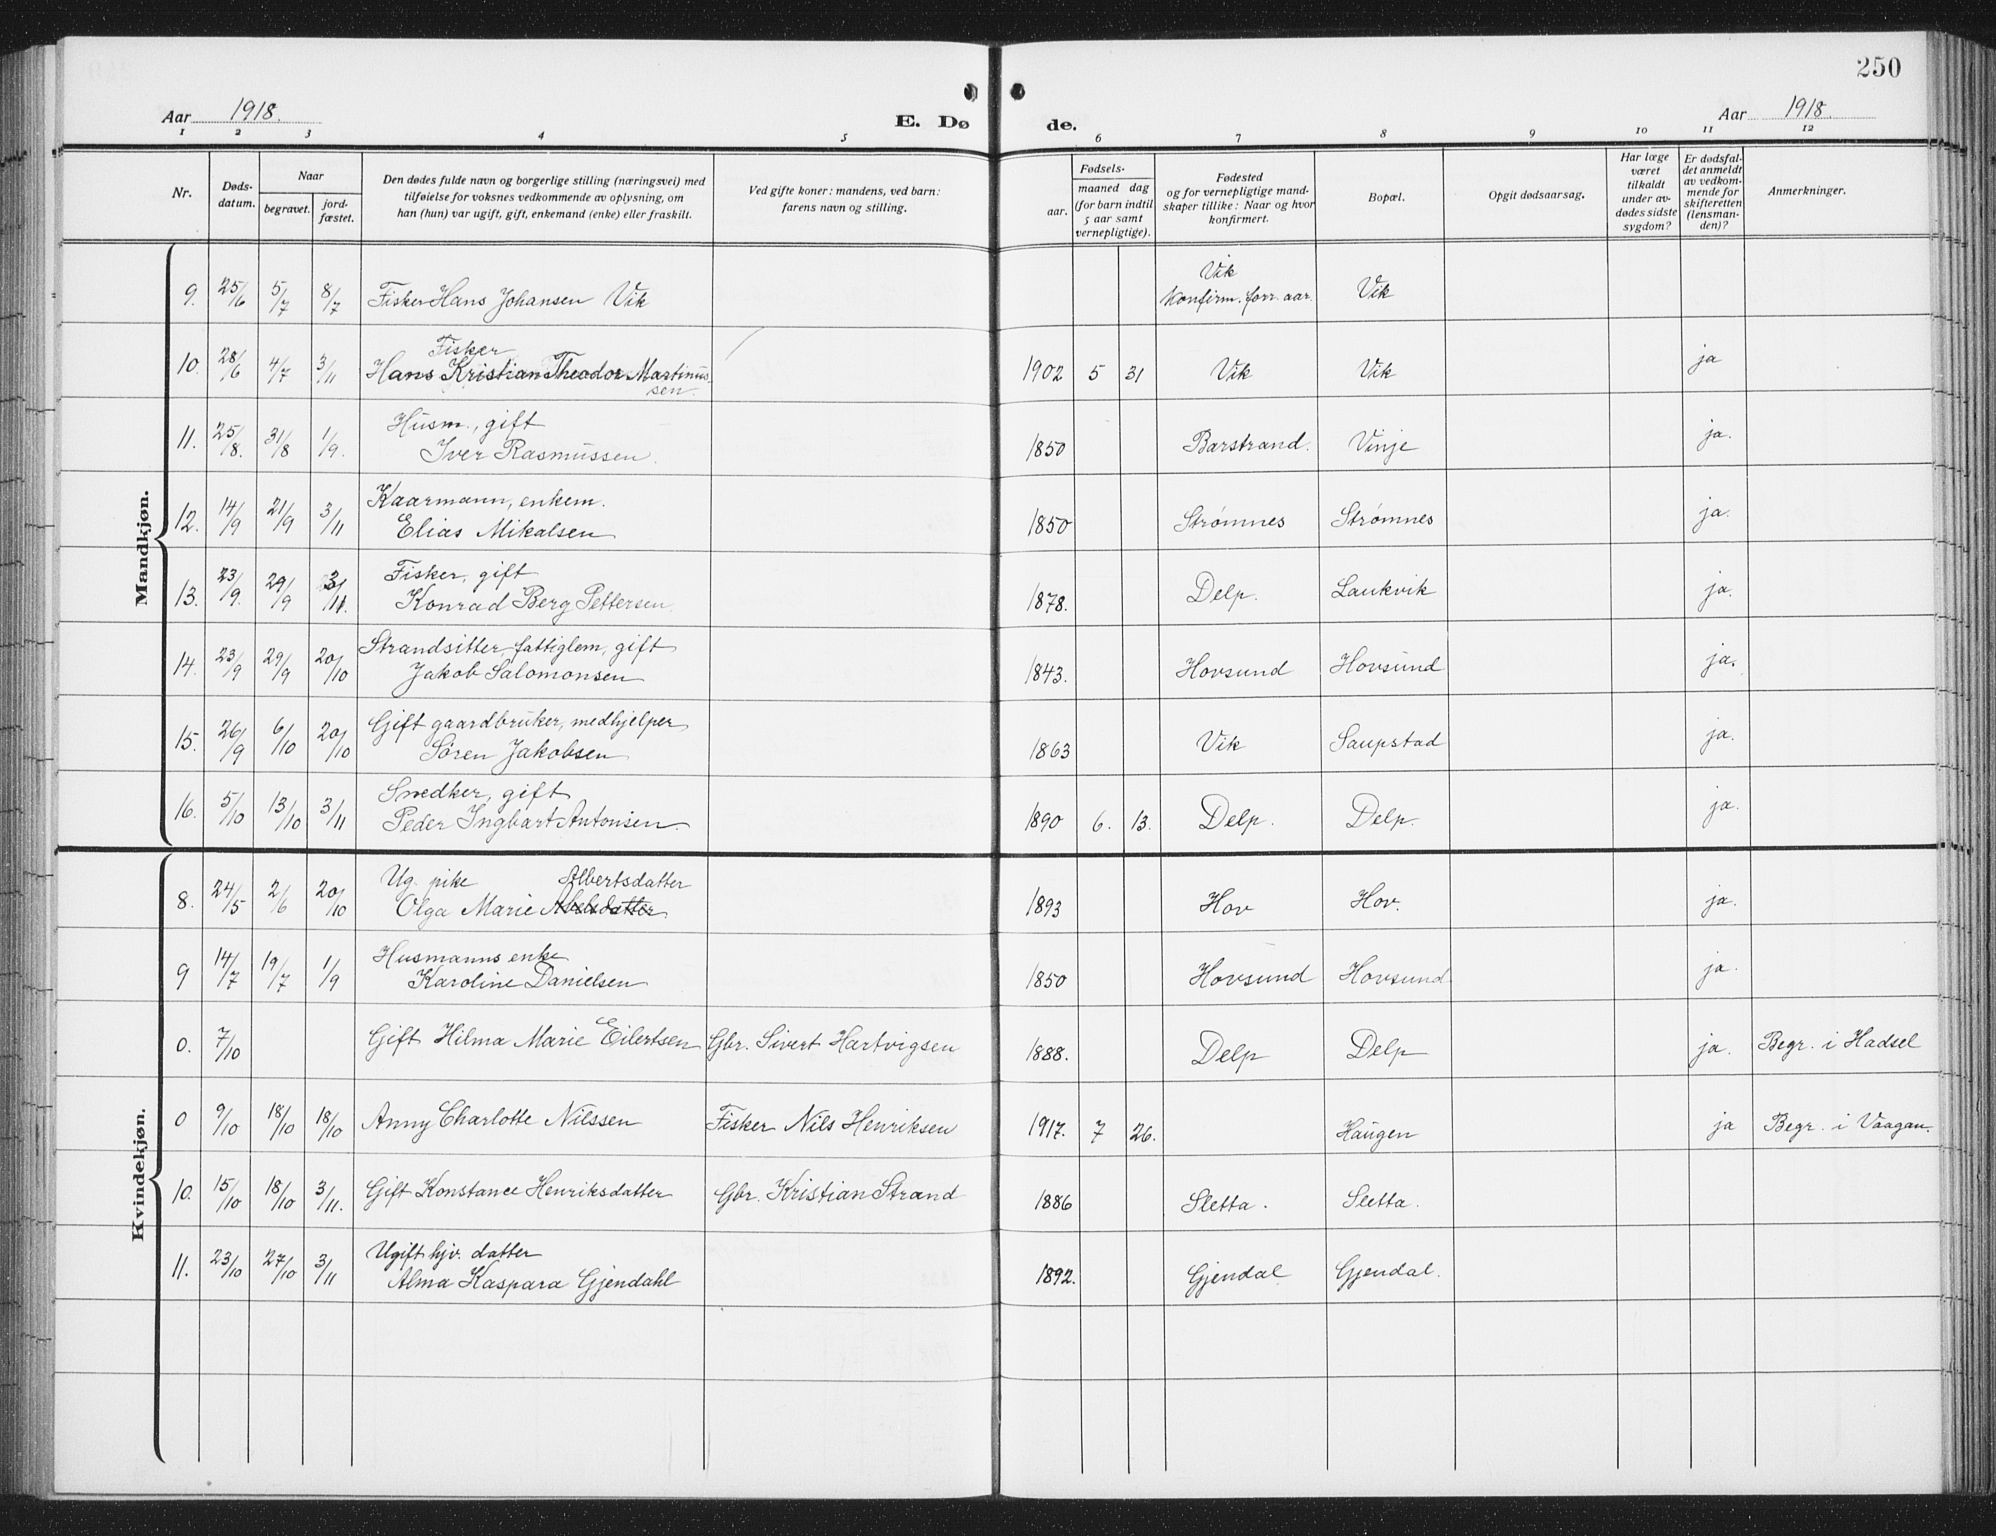 250
Aar 1918.
E. Dø de.
Aar 1918.
1 2 3 4 5 6 7 8 9 10 11 12
Nr.
Døds-
datum.
Naar
begravet.
jord-
fæstet.
Den dødes fulde navn og borgerlige stilling (næringsvei) med
tilføielse for voksnes vedkommende av oplysning, om
han (hun) var ugift, gift, enkemand (enke) eller fraskilt.
Ved gifte koner: mandens, ved barn:
farens navn og stilling.
Fødsels-
aar.
maaned dag
(for barn indtil
5 aar samt
vernepligtige).
Fødested
og for vernepligtige mand-
skaper tillike: Naar og hvor
konfirmert.
Bopæl.
Opgit dødsaarsag.
Har læge
været
tilkaldt
under av-
dødes sidste
sygdom?
Er dødsfal-
det anmeldt
av vedkom-
mende for
skifteretten
(lensman-
den)?
Anmerkninger.
Mandkjøn.
Vik
9. 25/6 5/7 8/7 Fisker Hans Johansen Vik Konfirm. forr. aar. Vik
Fisker
10. 28/6 4/7 3/11 Hans Kristian Theodor Martinus- 1902 5 31 Vik Vik ja
sen.
Husm., gift
11. 25/8. 31/8 1/9. Iver Rasmussen. 1850 Barstrand. Vinje ja.
Kaarmann, enkem.
12. 14/9 21/9 3/11 Elias Mikalsen 1850 Strømnes Strømnes ja.
Fisker, gift
13. 23/9. 29/9 3/11. Konrad Berg Pettersen. 1878. Delp. Laukvik ja.
Strandsitter fattiglem, gift
14. 23/9 29/9 20/10 Jakob Salomonsen 1843. Hovsund Hovsund ja.
Gift gaardbruker, medhjelper
15. 26/9 6/10 20/10 Søren Jakobsen 1863 Vik Saupstad ja.
Snedker, gift
16. 5/10 13/10 3/11 Peder Ingbart Antonsen. 1890 6. 13. Delp. Delp. ja.
Kvindekjøn.
Ug. pike Albertsdatter
8. 24/5 2/6 20/10 Olga Marie Abelsdatter. 1893 Hov Hov. ja.
Husmanns enke
9 14/7 19/7 1/9 Karoline Danielsen 1850 Hovsund Hovsund ja.
0. 7/10 Gift Hilma Marie Eilertsen Gbr. Sivert Hartvigsen 1888. Delp Delp ja. Begr. i Hadsel
0 9/10 18/10 18/10 Anny Charlotte Nilssen Fisker Nils Henriksen 1917. 7 26. Haugen ja Begr. i Vaagan.
10. 15/10 18/10 3/11. Gift Konstance Henriksdatter Gbr. Kristian Strand 1886 Sletta. Sletta.
Ugift hjv. datter
11. 23/10 27/10 3/11 Alma Kaspara Gjendahl 1892. Gjendal Gjendal.